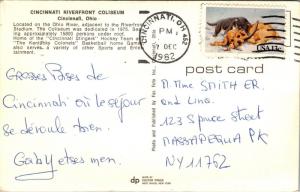 CINCINNATI RIVERFRONT COLISEUM
Cincinnati, Ohio
Located on the Ohio River, adjacent to the Riverfront
Stadium. The Coliseum was built in 1975.
ing approximately 16800 persons under roof.
Home of the "Cincinnati Stingers" Hockey Team
"The Kentucky Colonels" Basketball home games
also serves a variety of other Sports and
tainment.
CINCINNATI, OH 452
PM
7 DEC
1982
USA 13c
post card
Grosses Bises de
Cincinnati où le séjour
se déroule bien.
Gaby et ses men.
Mme SMITH ER.
and Lina
123 Spruce Street
MASSAPEQUA PK
NY 11762
dp